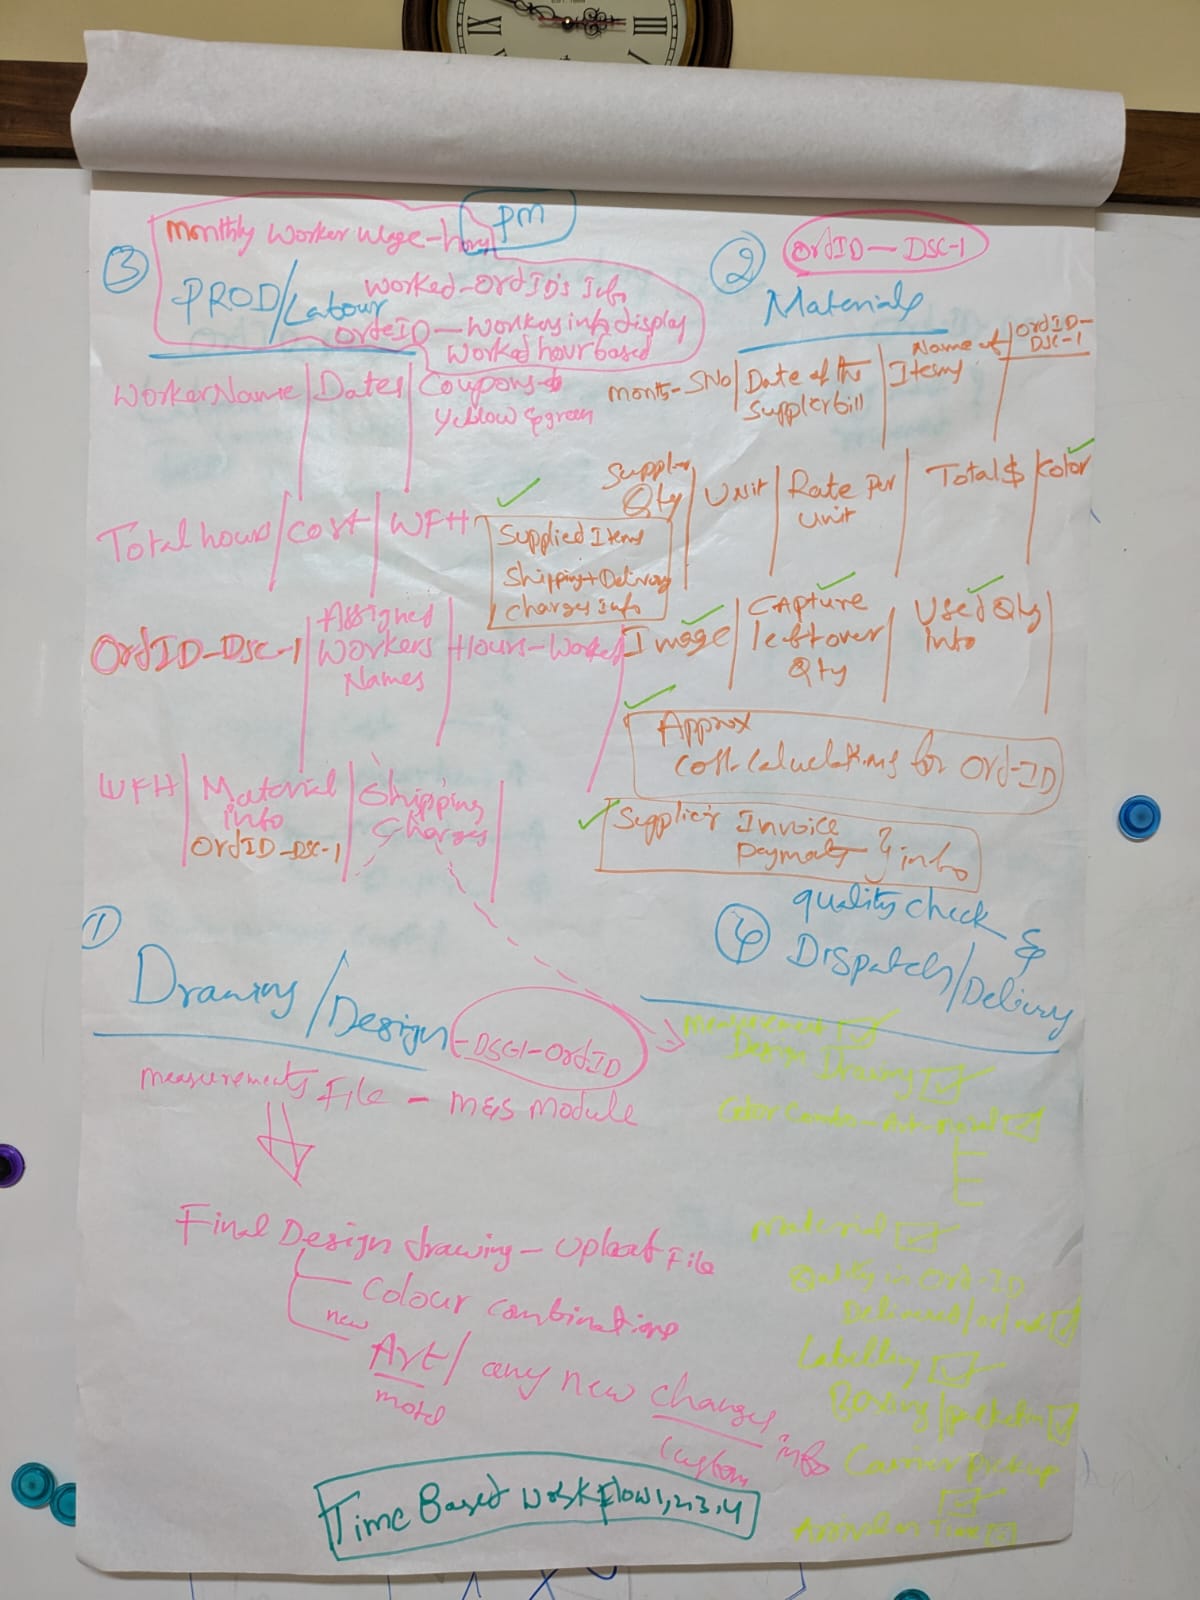 IX
III
PM
Monthly Worker Wage-
③ PROD/Labour
Worked-OrdID's Info
OrdeID — Workers info display
Worked hour based
Worker Name | Dates | Coupons
Yellow & green
Total hours | Cost | WFH
OrdID-DSC-1 | Assigned Workers Names | Hours-Worked
WFH | Material info OrdID-DSC-1 | Shipping Charges
② OrdID — DSC-1
Materials
Month- SNo | Date of the Supplier bill | Name of Items | OrdID-DSC-1
Supplier Qty | Unit | Rate Per unit | Total $ | Kolor
Supplied Items
Shipping + Delivery
Charges Info
Image | Capture leftover Qty | Used Qty Info
Approx
Cost-Calculations for Ord-ID
Supplier Invoice
Payments & info
①
Drawing/Design -DSC-1-OrdID
Measurements File - M&S Module
Final Design drawing - Upload File
Colour combinations
new
Art/ any new changes info
Model
Custom
④ Quality check &
Dispatch/Delivery
Measurement
Design Drawing
Color Combo-Art-Model
Material
in Ord-ID
Delivered/or/not
Labelling
Boxing/
Carrier Pickup
Arrival on Time
Time Based WorkFlow 1,2,3,4